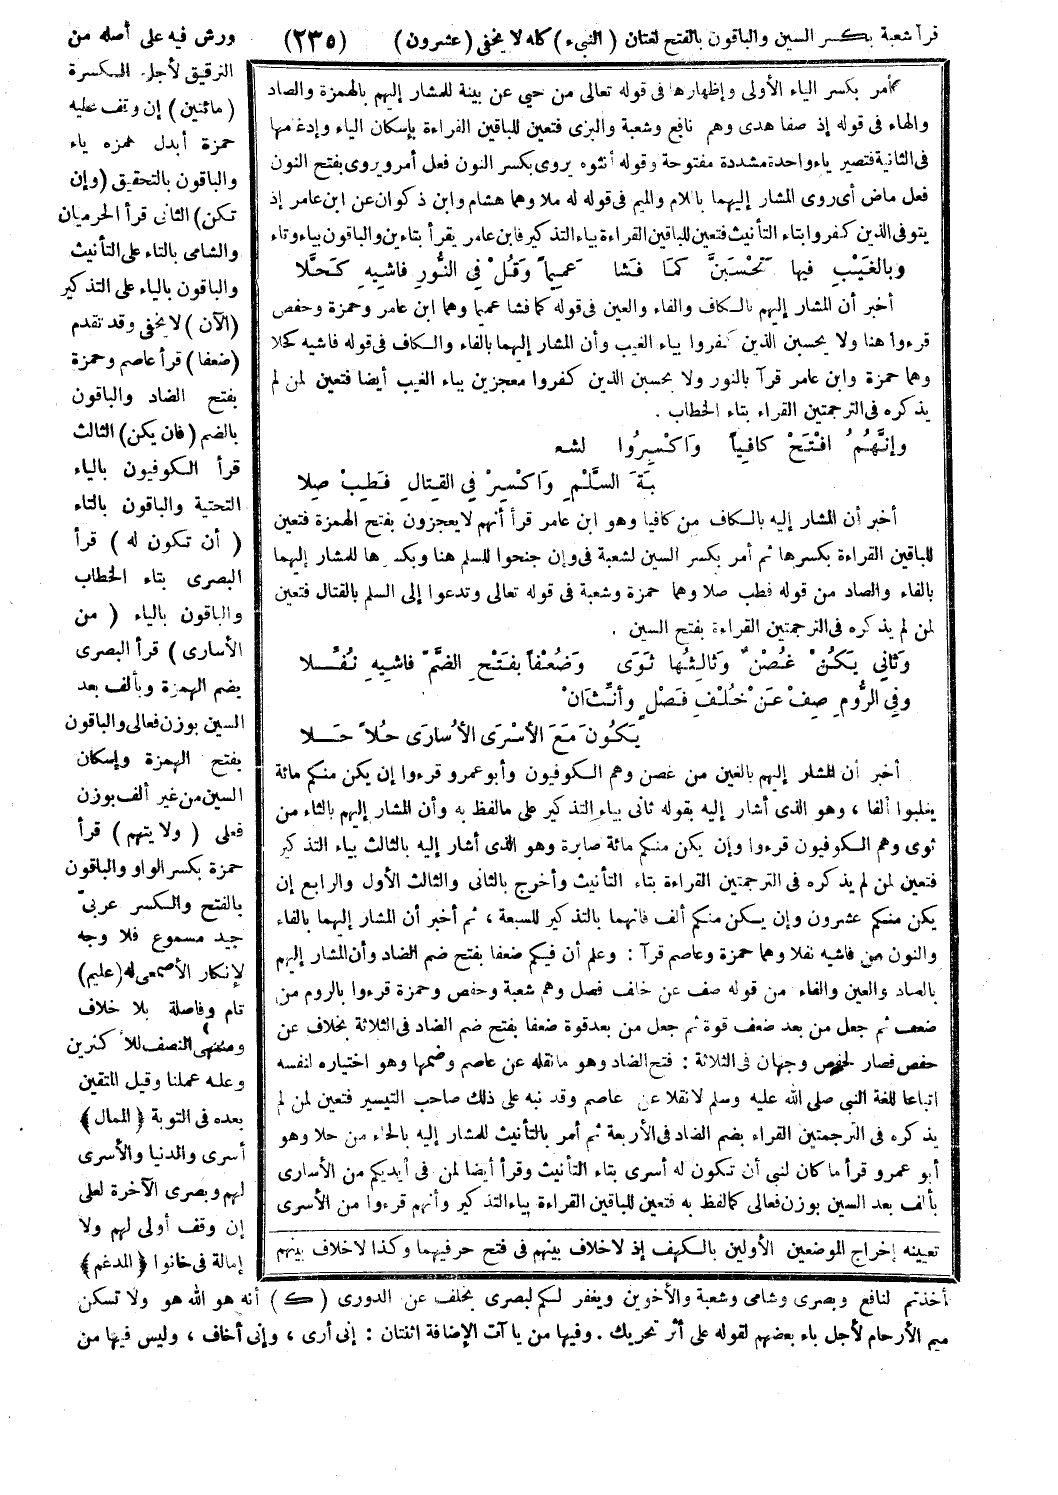 قرأ شعبة بكسر السين والباقون بالفتح لغتان (النبيء) كله لا يخفى (عشرون) (٢٣٥) ورش فيه على أصله من
الترقيق لأجل الكسرة
(مائتين) إن وقف عليه
حمزة أبدل همزه ياء
والباقون بالتحقيق (وإن
تكن) الثانى قرأ الحرميان
والشامى بالتاء على التأنيث
والباقون بالياء على التذكير
(الآن) لا يخفى وقد تقدم
(ضعفا) قرأ عاصم وحمزة
بفتح الضاد والباقون
بالضم (فان يكن) الثالث
قرأ الكوفيون بالياء
التحتية والباقون بالتاء
(أن تكون له) قرأ
البصرى بتاء الخطاب
والباقون بالياء (من
الأسارى) قرأ البصرى
بضم الهمزة وبألف بعد
السين بوزن فعالى والباقون
بفتح الهمزة وإسكان
السين من غير ألف بوزن
فعلى (ولايتهم) قرأ
حمزة بكسر الواو والباقون
بالفتح والكسر عربىّ
جيد مسموع فلا وجه
لإنكار الأصمعى له (عليم)
تام وفاصلة بلا خلاف
ومنتهى النصف للأكثرين
وعليه عملنا وقيل المتقين
بعده فى التوبة ﴿الممال﴾
أسرى والدنيا والأسرى
لهم وبصرى الآخرة لعلى
إن وقف أولى لهم ولا
إمالة فى خانوا ﴿المدغم﴾
كأمر بكسر الياء الأولى وإظهارها فى قوله تعالى من حيي عن بينة للمشار إليهم بالهمزة والصاد
والهاء فى قوله إذ صفا هدى وهم نافع وشعبة والبزى فتعين للباقين القراءة بإسكان الياء وإدغامها
فى الثانية فتصير ياء واحدة مشددة مفتوحة وقوله أنثوه يروى بكسر النون فعل أمر وروى بفتح النون
فعل ماض أى روى المشار إليهما باللام والميم فى قوله له ملا وهما هشام وابن ذكوان عن ابن عامر إذ
يتوفى الذين كفروا بتاء التأنيث فتعين للباقين القراءة بياء التذكير فابن عامر يقرأ بتاءين والباقون بياء وتاء
وبالغَيْبِ فيها تَحْسَبَنَّ كَمَا فَشَا عَمِيماً وَقُلْ فِي النُّورِ فاشِيهِ كَحَّلا
أخبر أن المشار إليهم بالكاف والفاء والعين فى قوله كما فشا عميما وهما ابن عامر وحمزة وحفص
قرءوا هنا ولا يحسبن الذين كفروا بياء الغيب وأن المشار إليهما بالفاء والكاف فى قوله فاشيه كحلا
وهما حمزة وابن عامر قرآ بالنور ولا يحسبن الذين كفروا معجزين بياء الغيب أيضا فتعين لمن لم
يذكره فى الترجمتين القراء بتاء الخطاب .
وإنَّهُمُ افْتَحْ كافِياً وَاكْسِرُوا لشعـ
ـبَةَ السَّلْمِ وَاكْسِرْ فِي القِتالِ فَطِبْ صِلا
أخبر أن المشار إليه بالكاف من كافيا وهو ابن عامر قرأ أنهم لا يعجزون بفتح الهمزة فتعين
للباقين القراءة بكسرها ثم أمر بكسر السين لشعبة فى وإن جنحوا للسلم هنا وبكسرها للمشار إليهما
بالفاء والصاد من قوله فطب صلا وهما حمزة وشعبة فى قوله تعالى وتدعوا إلى السلم بالقتال فتعين
لمن لم يذكره فى الترجمتين القراءة بفتح السين .
وَثانِي يَكُنْ غُصْنٌ وَثالِثُها ثَوَى وَضُعْفاً بِفَتْحِ الضَّمِّ فاشِيهِ نُفِّلا
وفِي الرُّومِ صِفْ عَنْ خُلْفِ فَصْلٍ وأَنِّثْ انْ
يَكُونَ مَعَ الأسْرَى الأُسارَى حُلاً حَلا
أخبر أن المشار إليهم بالغين من غصن وهم الكوفيون وأبو عمرو قرءوا إن يكن منكم مائة
يغلبوا ألفا ، وهو الذى أشار إليه بقوله ثانى بياء التذكير على ما لفظ به وأن المشار إليهم بالثاء من
ثوى وهم الكوفيون قرءوا وإن يكن منكم مائة صابرة وهو الذى أشار إليه بالثالث بياء التذكير
فتعين لمن لم يذكره فى الترجمتين القراءة بتاء التأنيث وأخرج بالثانى والثالث الأول والرابع إن
يكن منكم عشرون وإن يكن منكم ألف فانهما بالتذكير للسبعة ، ثم أخبر أن المشار إليهما بالفاء
والنون من فاشيه نفلا وهما حمزة وعاصم قرآ : وعلم أن فيكم ضعفا بفتح ضم الضاد وأن المشار إليهم
بالصاد والعين والفاء من قوله صف عن خلف فصل وهم شعبة وحفص وحمزة قرءوا بالروم من
ضعف ثم جعل من بعد ضعف قوة ثم جعل من بعد قوة ضعفا بفتح ضم الضاد فى الثلاثة بخلاف عن
حفص فصار لحفص وجهان فى الثلاثة : فتح الضاد وهو ما نقله عن عاصم وضمها وهو اختياره لنفسه
اتباعا للغة النبي صلى الله عليه وسلم لا نقلا عن عاصم وقد نبه على ذلك صاحب التيسير فتعين لمن لم
يذكره فى الترجمتين القراء بضم الضاد فى الأربعة ثم أمر بالتأنيث للمشار إليه بالحاء من حلا وهو
أبو عمرو قرأ ما كان لنبي أن تكون له أسرى بتاء التأنيث وقرأ أيضا لمن فى أيديكم من الأسارى
بألف بعد السين بوزن فعالى كما لفظ به فتعين للباقين القراءة بياء التذكير وأنهم قرءوا من الأسرى
تعيينه إخراج الموضعين الأولين بالكهف إذ لا خلاف بينهم فى فتح حرفيهما وكذا لا خلاف بينهم
أخذتم لنافع وبصرى وشامى وشعبة والأخوين ويغفر لكم لبصرى بخلف عن الدورى (ك) أنه هو الله هو ولا تسكن
ميم الأرحام لأجل باء بعضهم لقوله على أثر تحريك . وفيها من ياآت الإضافة اثنتان : إنى أرى ، وإنى أخاف ، وليس فيها من